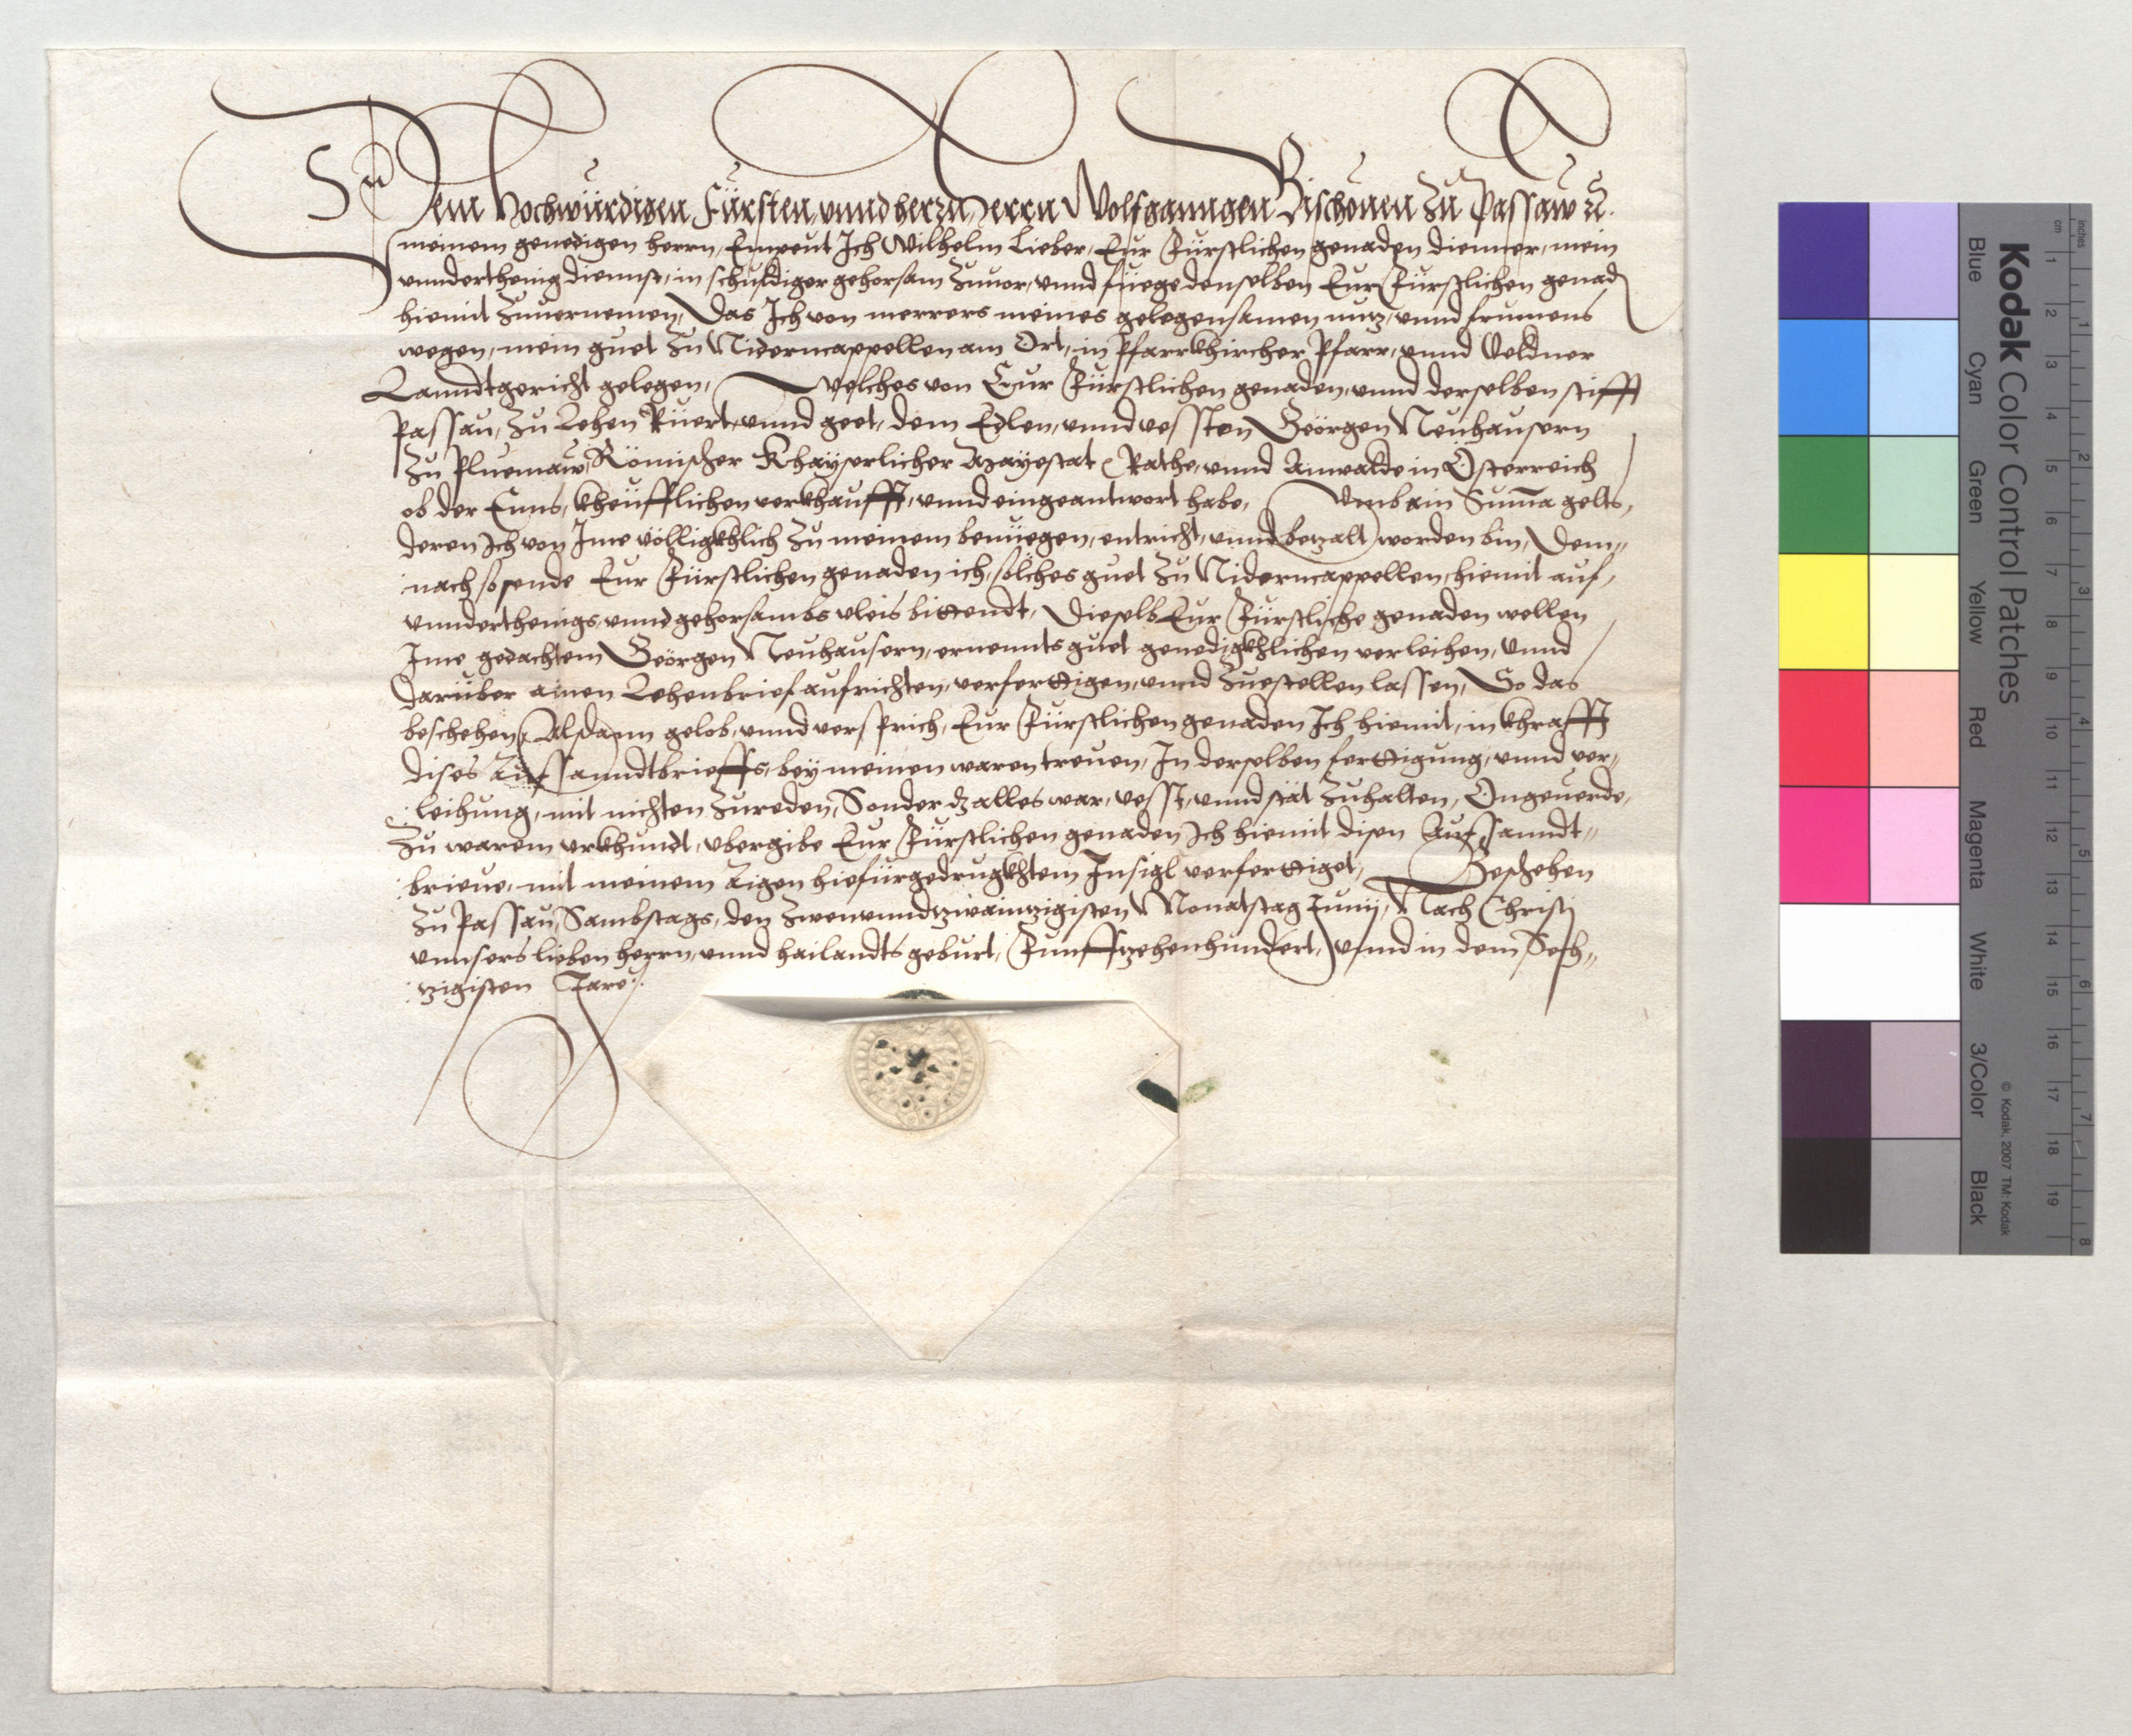 Dem Hochwürdigen Fürsten, vnnd herrn Herrn Wolfganngen Bischouen Zu Passaw zc.
meinem genedigen herrn, Empeut Ich Wilhelm Lieber, Eur Fürstlichen genaden dienner, mein
vnnderthenig diennst, in schuldiger gehorsam Zuuor, vnnd füege denselben Eur Fürstlichen genad
hiemit Zuuernemen, Das Ich von merrers meines gelegensamen nutz, vnnd frumens
wegen, mein guet Zu Niderncappellen am Ort, in Pfarrkhircher Pfarr, vnnd Veldner
Lanndtgericht gelegen, welches von Eur Fürstlichen genaden, vnnd derselben stifft
Passau, Zu Lehen Rüert, vnnd geet, dem Edlen, vnnd vessten Geörgen Neuhausern
Zu Pluemaw, Römischer Khayserlicher Mayestat Rathe, vnnd Anwalde in Österreich
ob der Enns, kheüfflichen verkhaufft, vnnd eingeantwort habe, Vmb ain Suma gelts,
deren Ich von Ime völligkhlich Zu meinem benüegen, entricht, vnnd betzalt worden bin, Dem„
nach so sende Eur Fürstlichen genaden ich, solches guet Zu Niderncappellen, hiemit auf,
vnnderthenigs, vnnd gehorsambs vleis bittendt, Dieselb Eur Fürstliche genaden wellen
Ime gedachtem Geörgen Neuhausern, ernennts guet genedigkhlichen verleihen, vnnd
darüber ainen Lehenbrief aufrichten, verferttigen, vnnd Zuestellen lassen, So das
beschehen, Alsdann gelob, vnnd versprich, Eur Fürstlichen genaden Ich hiemit, in khrafft
dises Aufsanndtbrieffs, bey meinen waren treuen, In derselben ferttigung, vnnd ver„
leihung, mit nichten Zureden, Sonder dz alles war, vesst, vnnd stät Zuhalten, Ongeuerde,
Zu warem vrkhundt, vbergibe Eur Fürstlichen genaden Ich hiemit disen Aufsanndt„
brieue, mit meinem Aigen hiefürgedrugkhtem Insigl verferttiget, Geschehen
Zu Passau, Sambstags, den Zwenvnndtzwaintzigisten Monatstag Junij, Nach Christj
vnnsers lieben herrn, vnnd hailandts geburt, Funfftzehenhundert, vnnd in dem Sech„
tzigisten Jare
Kodak Color Control Patches
Blue Cyan Green Yellow Red Magenta White 3/Color Black
© Kodak, 2007 TM: Kodak
cm 1 2 3 4 5 6 7 8 9 10 11 12 13 14 15 16 17 18 19
inches 1 2 3 4 5 6 7 8